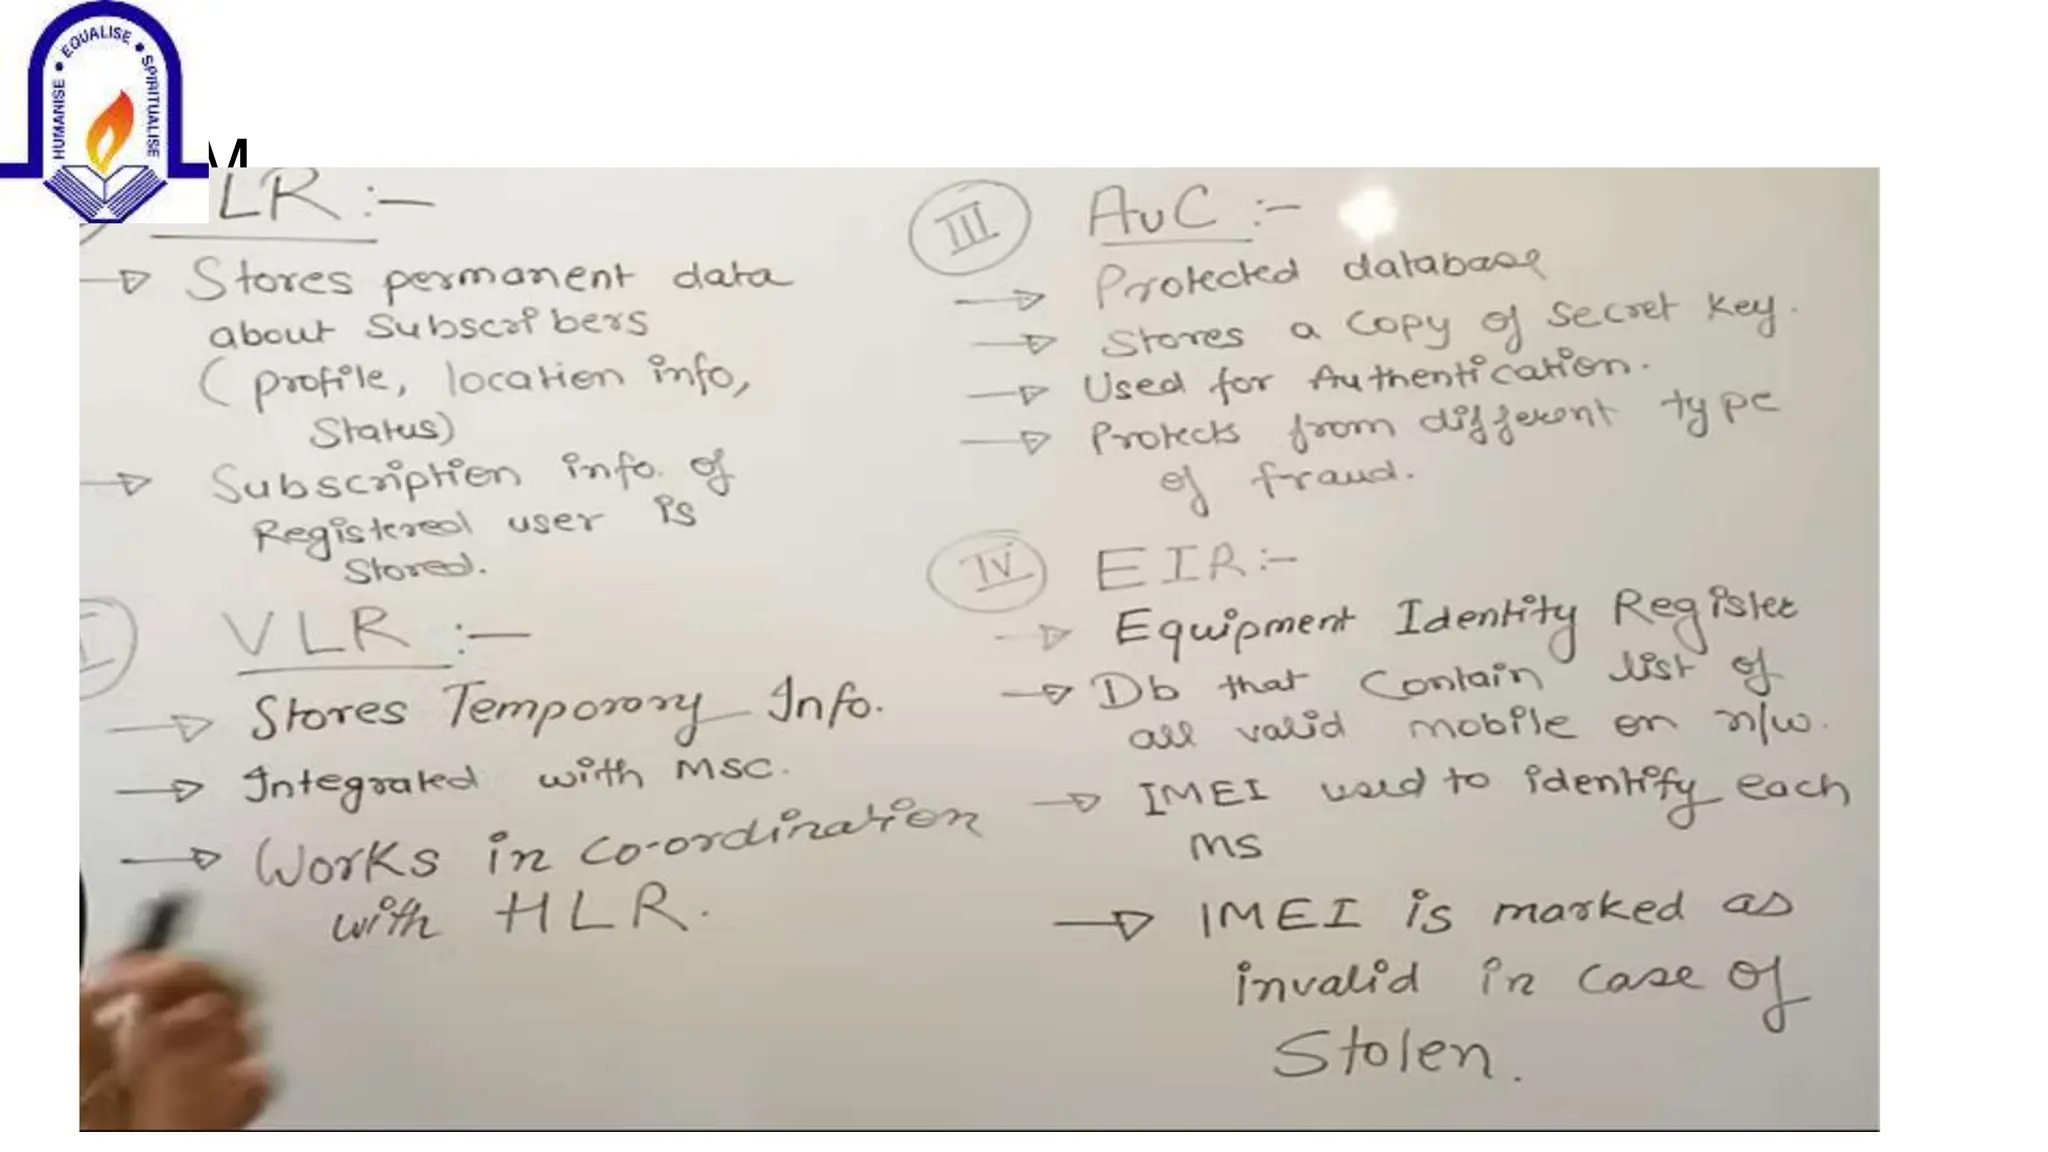 HUMANISE • EQUALISE • SPIRITUALISE
M
LR :-
Stores permanent data
about Subscribers
(profile, location info,
Status)
Subscription info. of
Registered user is
Stored.
I
VLR :-
Stores Temporory Info.
Integrated with MSC.
Works in co-ordination
with HLR.
III AUC :-
Protected database
Stores a copy of secret key.
Used for Authentication.
Protects from different type
of fraud.
IV EIR :-
Equipment Identity Register
Db that contain list of
all valid mobile on n/w.
IMEI used to identify each
MS
IMEI is marked as
invalid in case of
Stolen.